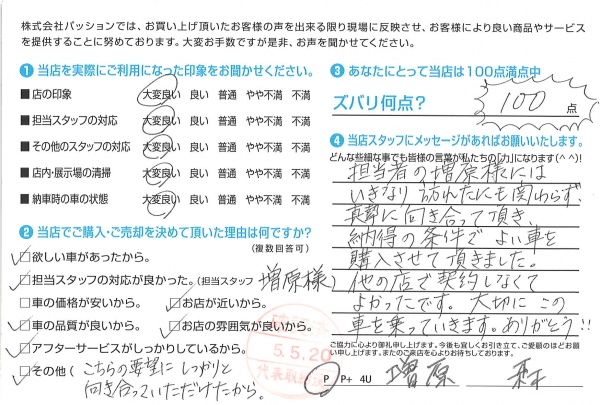 株式会社パッションでは、お買い上げ頂いたお客様の声を出来る限り現場に反映させ、お客様により良い商品やサービス
を提供することに努めております。大変お手数ですが是非、お声を聞かせてください。
❶ 当店を実際にご利用になった印象をお聞かせください。
■ 店の印象 大変良い 良い 普通 やや不満 不満
■ 担当スタッフの対応 大変良い 良い 普通 やや不満 不満
■ その他のスタッフの対応 大変良い 良い 普通 やや不満 不満
■ 店内・展示場の清掃 大変良い 良い 普通 やや不満 不満
■ 納車時の車の状態 大変良い 良い 普通 やや不満 不満
❷ 当店でご購入・ご売却を決めて頂いた理由は何ですか?
(複数回答可)
欲しい車があったから。
担当スタッフの対応が良かった。(担当スタッフ 増原様)
車の価格が安いから。 お店が近いから。
車の品質が良いから。 お店の雰囲気が良いから。
アフターサービスがしっかりしているから。
その他(こちらの要望に しっかりと
向き合っていただけたから。
5.5.20
代表取締役
❸ あなたにとって当店は100点満点中
ズバリ何点? 100点
❹ 当店スタッフにメッセージがあればお願いいたします。
どんな些細な事でも皆様の言葉が私たちの「力」になります(^ ^)!
担当者の増原様には
いきなり 訪れたにも関わらず、
真摯に向き合って頂き、
納得の条件で よい車を
購入させて頂きました。
他の店で契約しなくて
よかったです。大切に この
車を乗っていきます。ありがとう!!
ご協力に心より御礼申し上げます。今後も宜しくお引き立て、ご愛顧のほどお願
い申し上げます。またのご来店を心よりお待ちしております。
P P+ 4U 増原